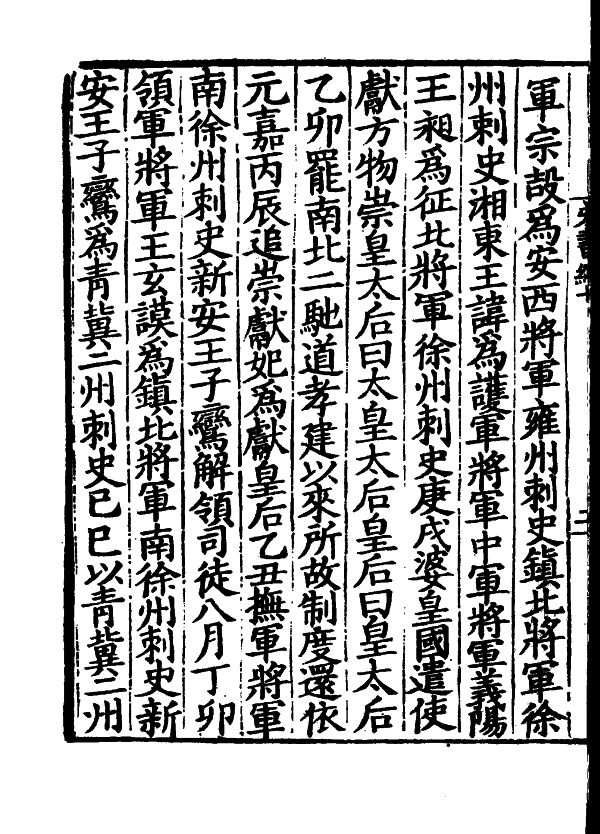 軍宗愨爲安西將軍雍州刺史鎮北將軍徐
州刺史湘東王諱爲護軍將軍中軍將軍義陽
王昶爲征北將軍徐州刺史庚戌婆皇國遣使
獻方物崇皇太后曰太皇太后皇后曰皇太后
乙卯罷南北二馳道孝建以來所故制度還依
元嘉丙辰追崇獻妃爲獻皇后乙丑撫軍將軍
南徐州刺史新安王子鸞解領司徒八月丁卯
領軍將軍王玄謨爲鎮北將軍南徐州刺史新
安王子鸞爲青冀二州刺史已巳以青冀二州